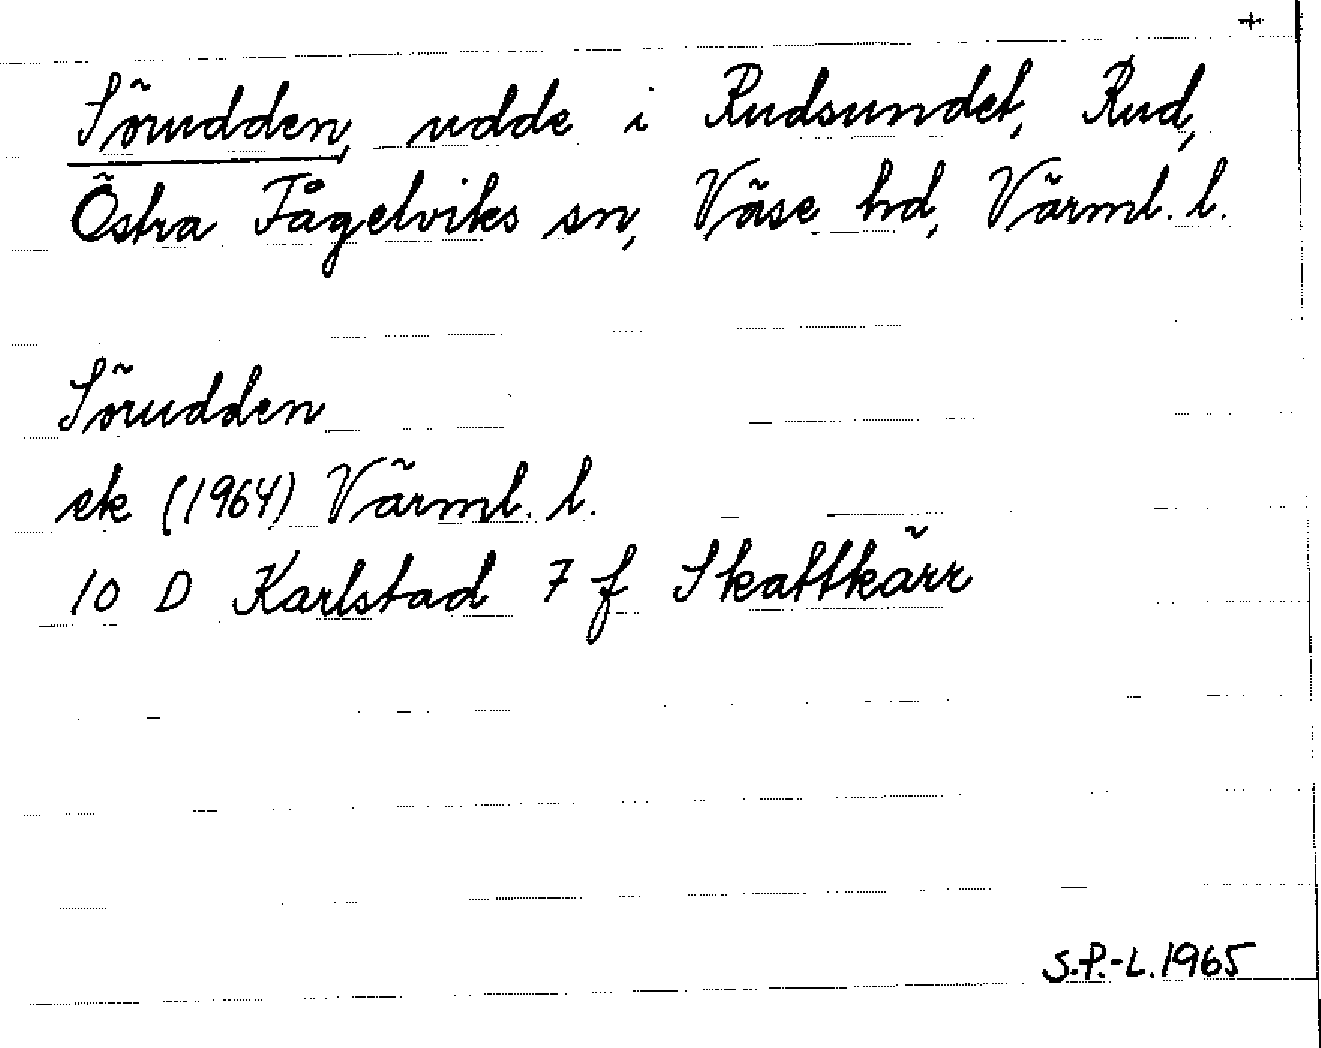 +
Sörudden, udde i Rudsundet, Rud,
Östra Fågelviks sn, Väse hd, Värml. l.
Sörudden
ek (1964) Värml. l.
10 D Karlstad 7 f Skattkärr
S.P.-L. 1965